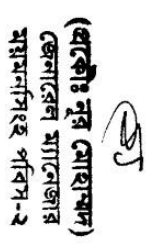 (প্রকৌঃ নূর মোহাম্মদ)
জেনারেল ম্যানেজার
ময়মনসিংহ পবিস-২